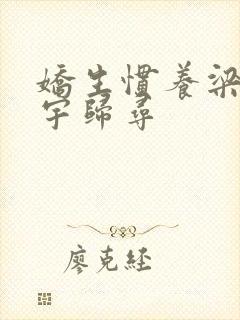 嬌生慣養梁
宇歸尋
廖克經